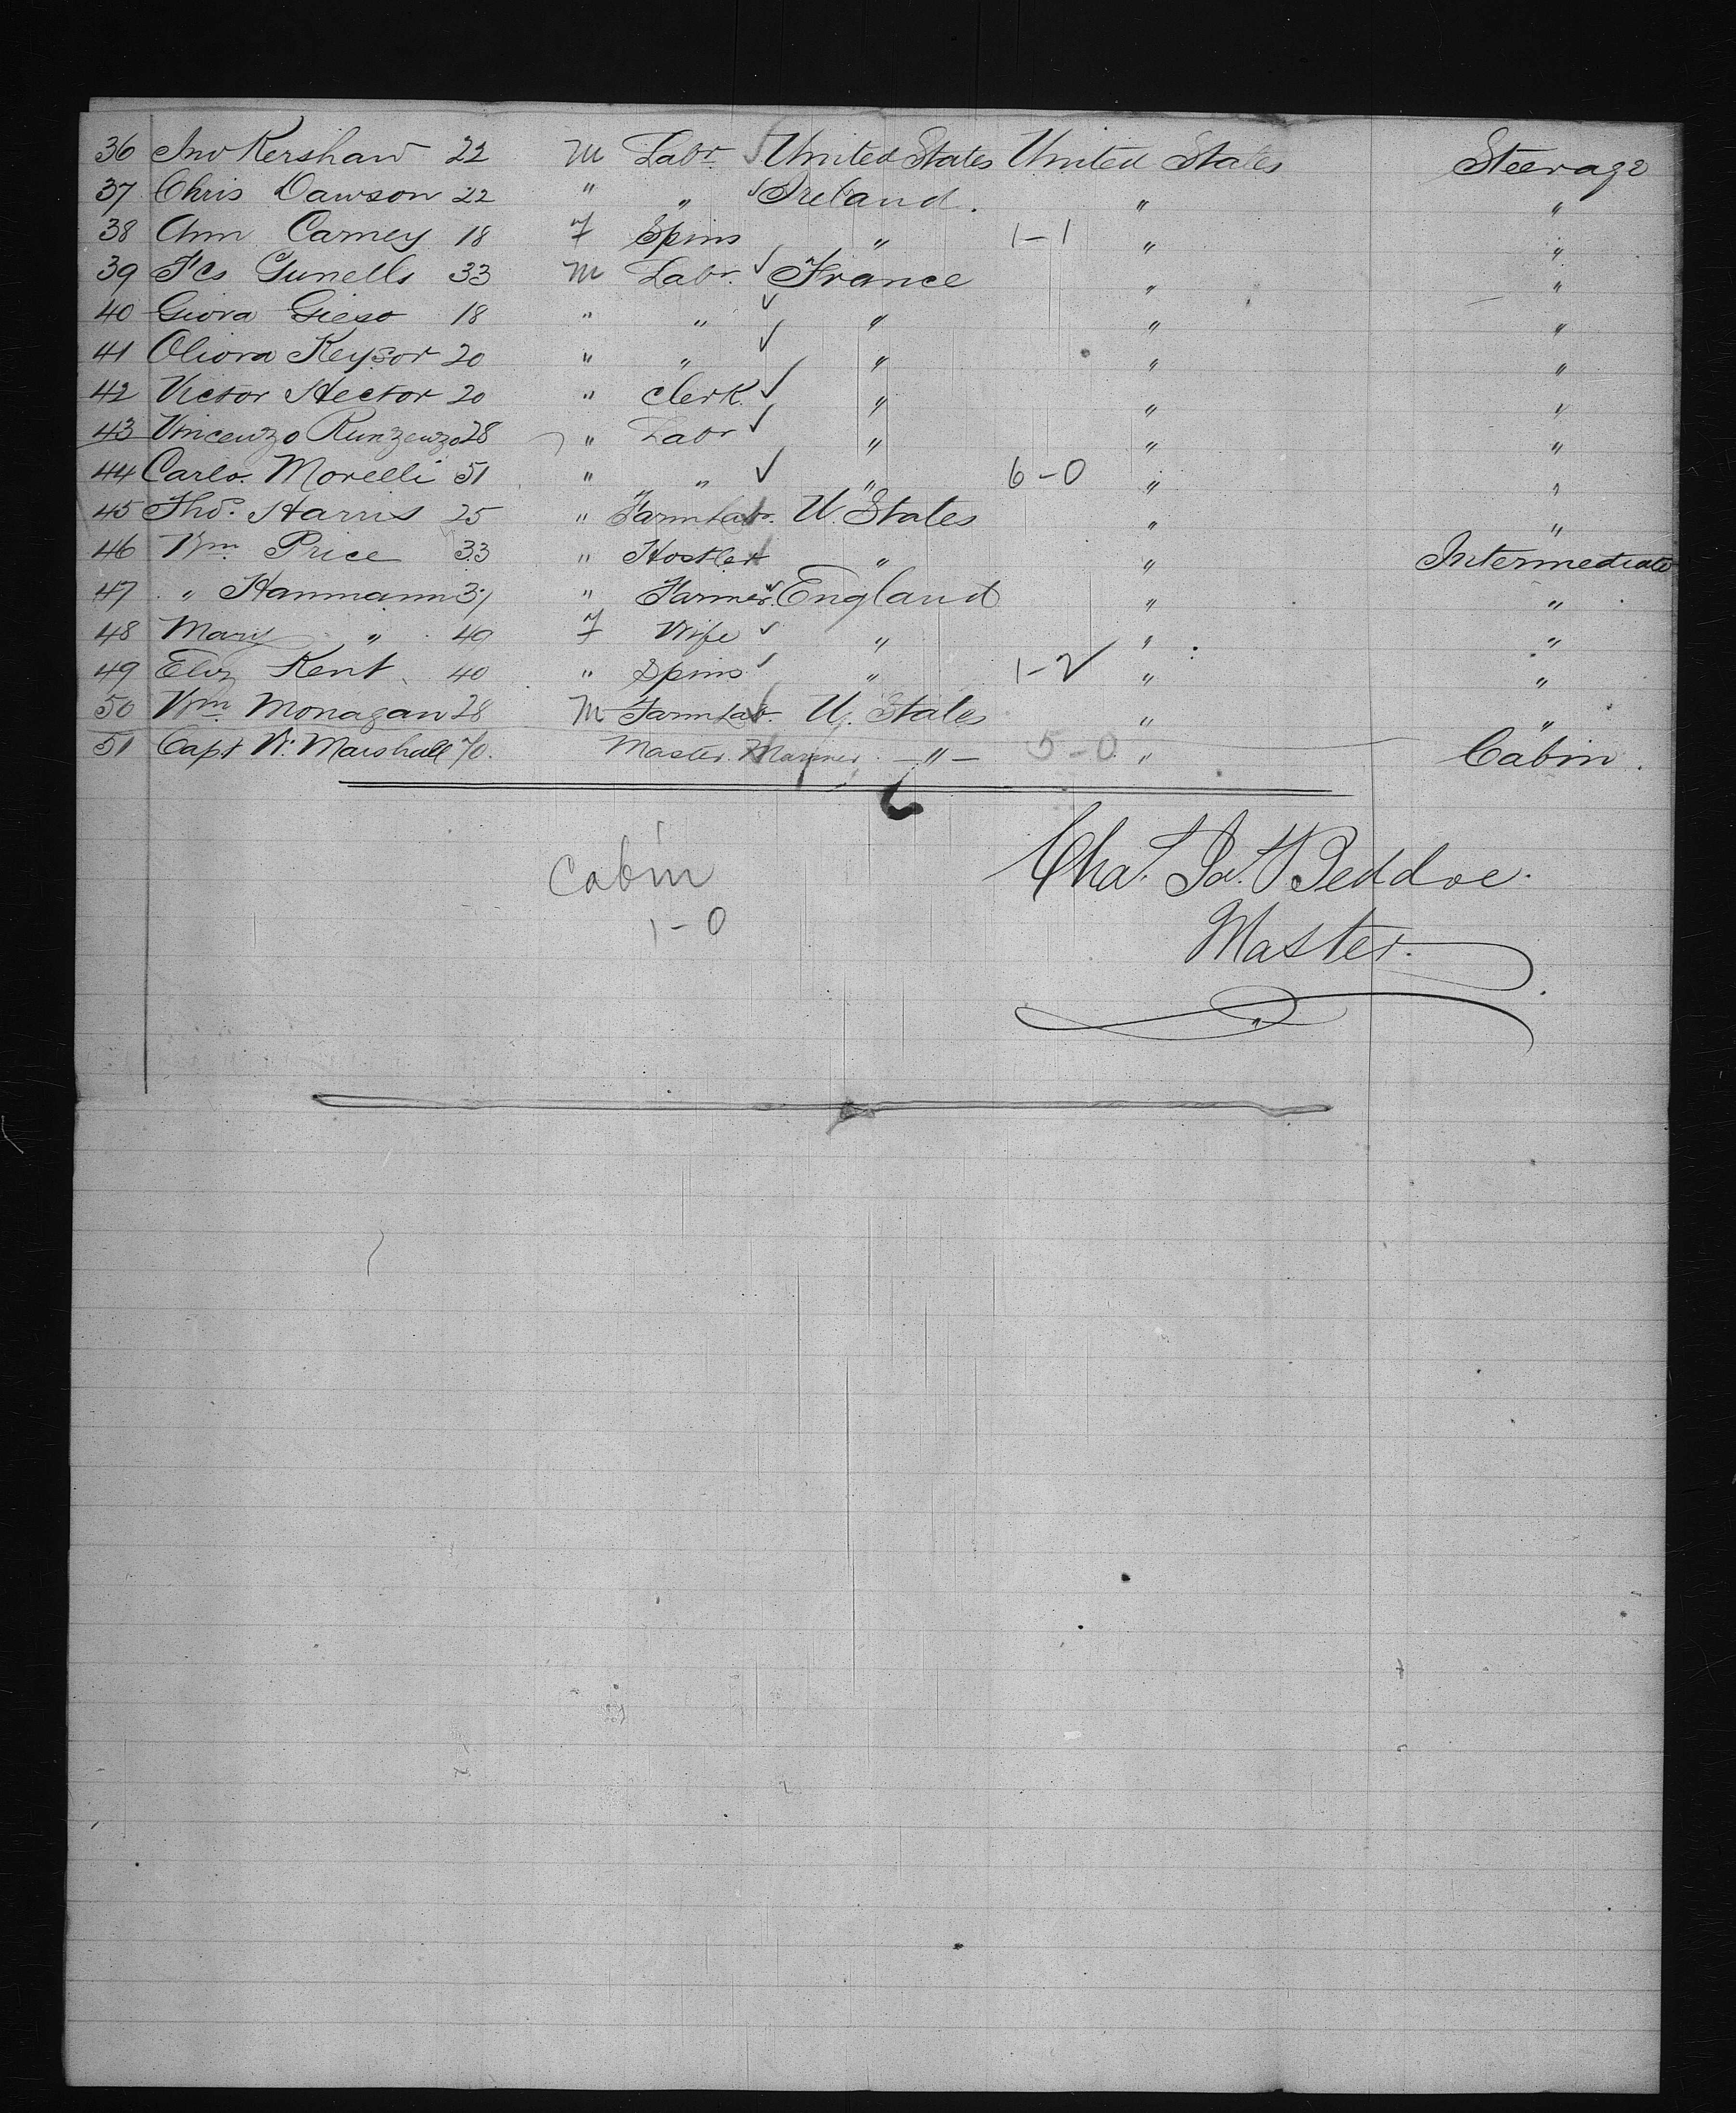 36 Jno Kershaw 22 M Labr United States United States Steerage
37 Chris Dawson 22 " " Ireland. " "
38 Ann Carney 18 F Spins " 1-1 " "
39 Fcs Gunells 33 M Labr. France " "
40 Giova Gieso 18 " " " " "
41 Oliova Keysor 20 " " " " "
42 Victor Hector 20 " Clerk. " " "
43 Vincenzo Runzenzo 28 " Labr " " "
44 Carlo. Morelli 51 " " " 6-0 " "
45 Tho. Harris 25 " Farm Labr. U. States " "
46 Wm Price 33 " Hostler " " Intermediate
47 " Hanmann " Farmer. England " "
48 Mary " 49 F Wife " " "
49 Eliz Kent 40 " Spins " 1-2 " "
50 Wm Monagan 28 M Farm Lab. U. States " "
51 Capt W. Marshall 70. Master Mariner. - " - 5-0 " Cabin.
Cabin
1-0
Chas. Beddoe.
Master.